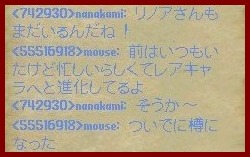 <742930>nanakami: リノアさんも
まだいるんだね！
<55516918>mouse: 前はいつもい
たけど忙しいらしくてレアキャ
ラへと進化してるよ
<742930>nanakami: そうか～
<55516918>mouse: ついでに樽に
なった